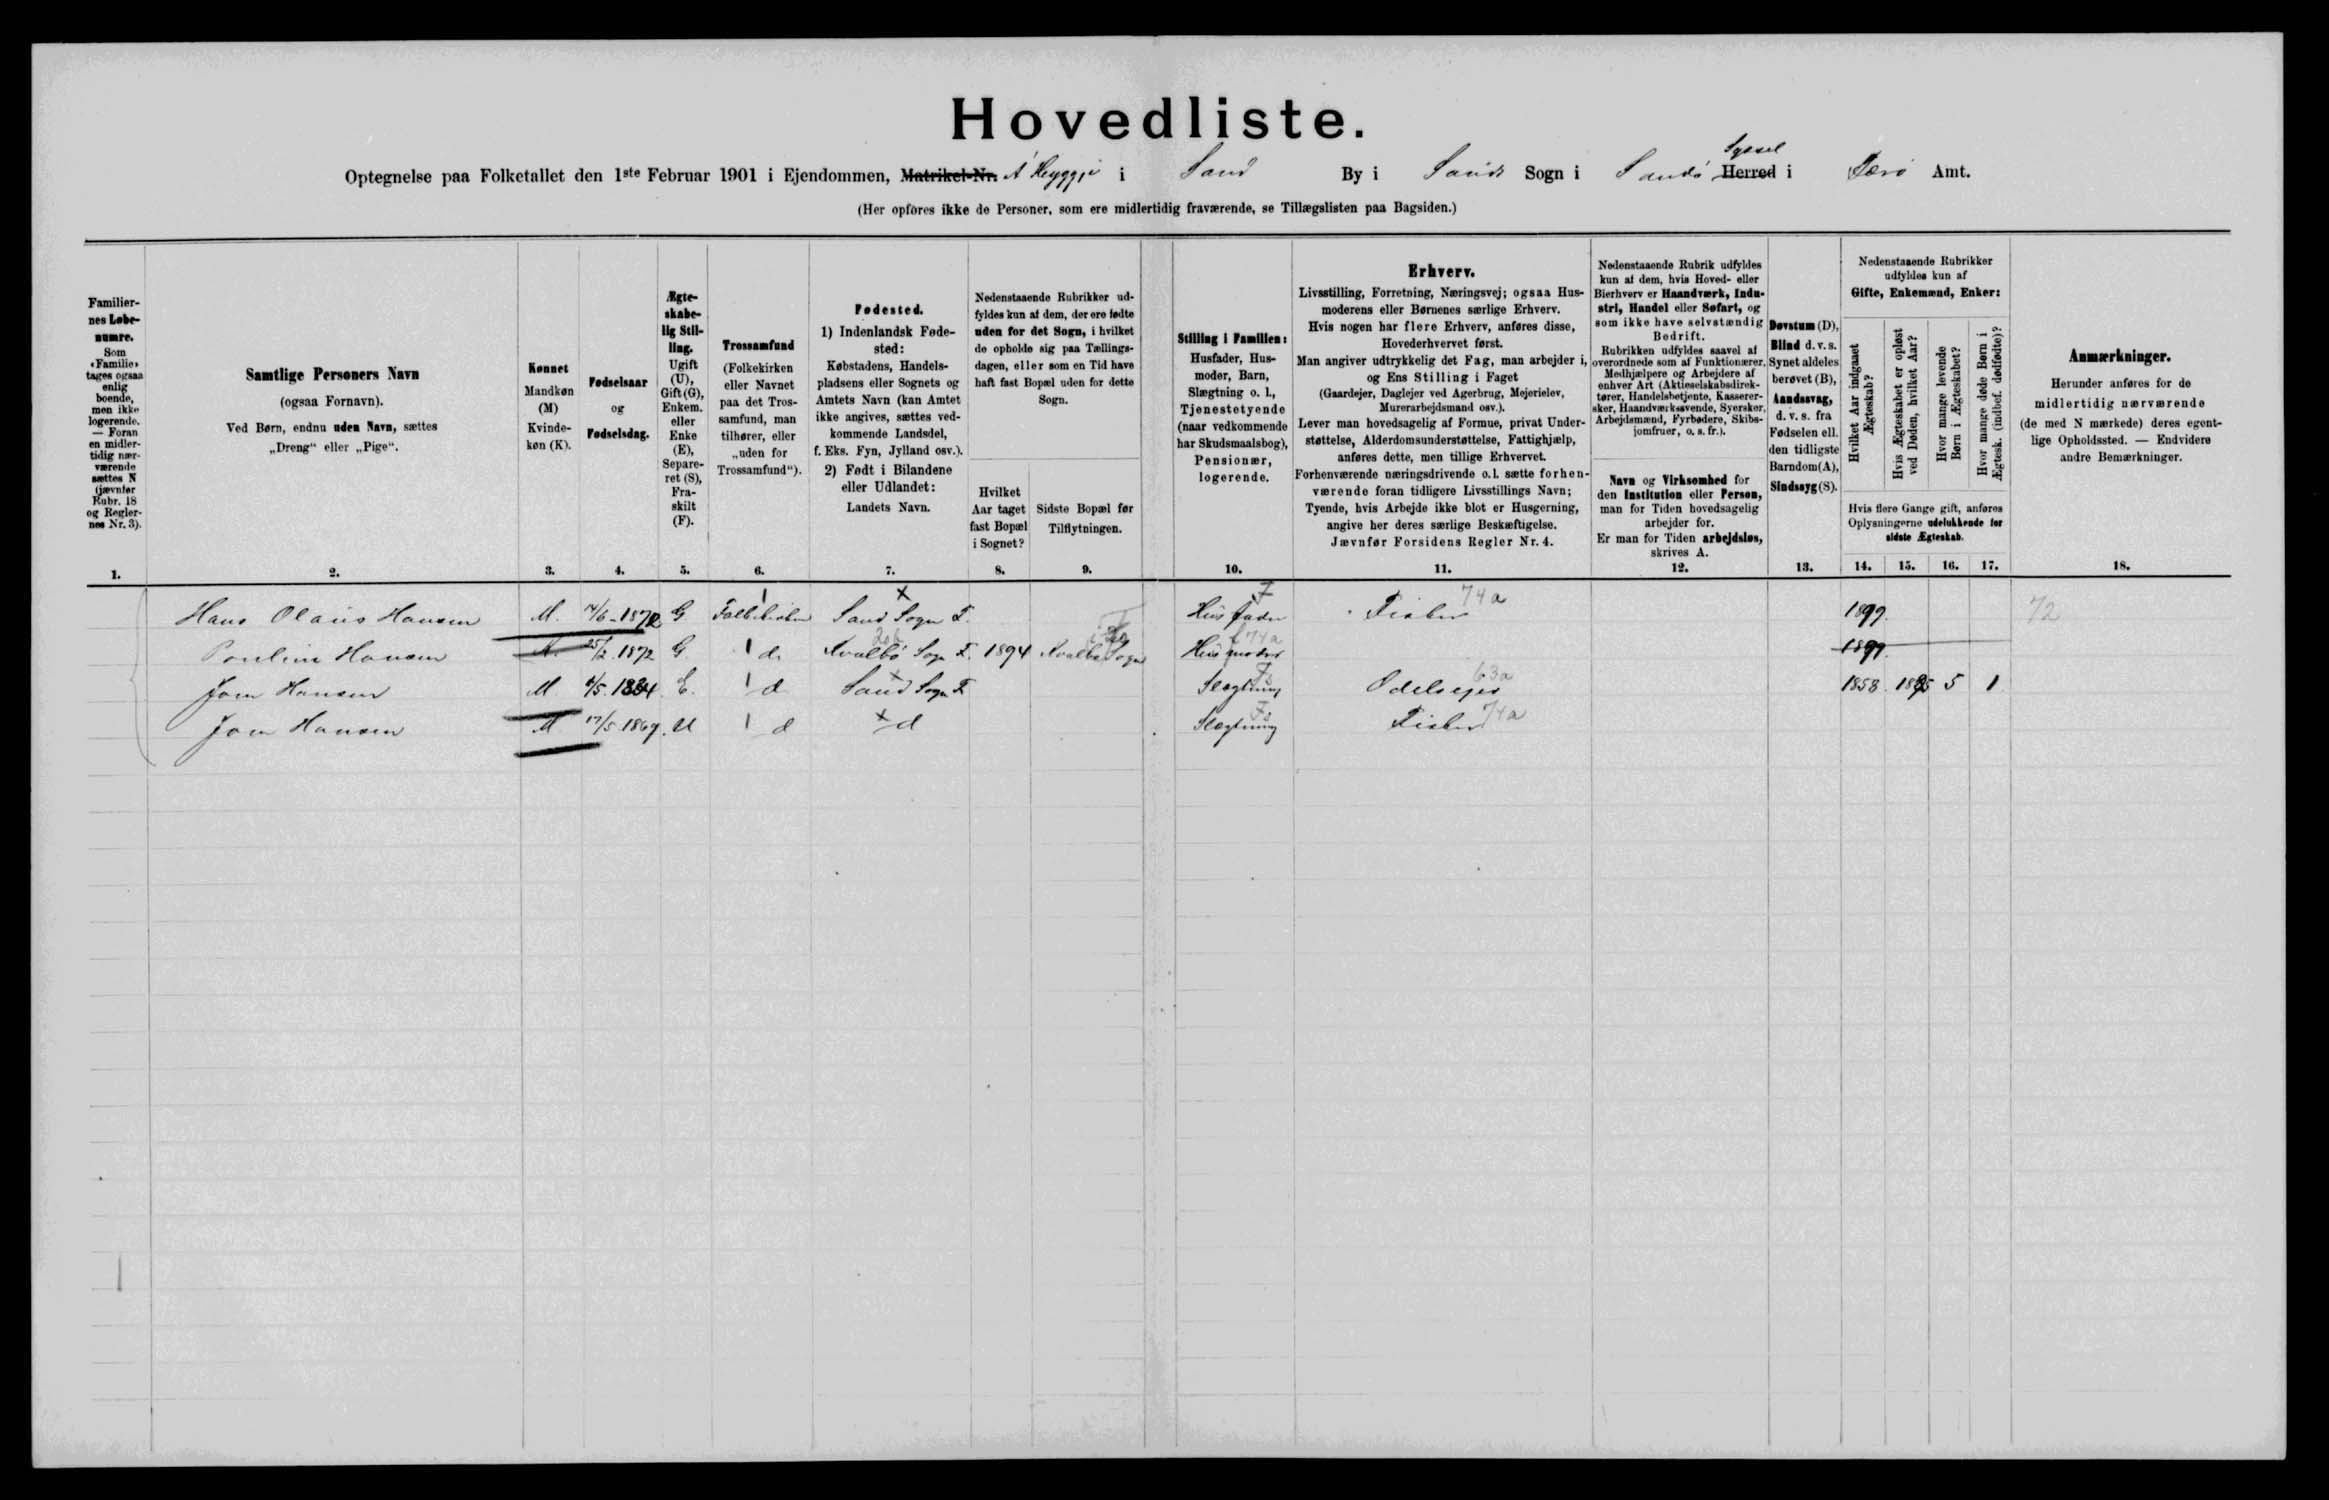 Hovedliste.
Optegnelse paa Folketallet den 1ste Februar 1901 i Ejendommen, Matrikel-Nr. Á Heyggji i Sand By i Sands Sogn i Sandø Herred Syssel i Færø Amt.
(Her opføres ikke de Personer, som ere midlertidig fraværende, se Tillægslisten paa Bagsiden.)
Familiernes Løbenumre.
Som «Familie» tages ogsaa enlig boende, men ikke logerende. — Foran en midlertidig nærværende sættes N (jævnfør Rubr. 18 og Reglernes Nr. 3).
Samtlige Personers Navn
(ogsaa Fornavn).
Ved Børn, endnu uden Navn, sættes
„Dreng“ eller „Pige“.
Kønnet
Mandkøn
(M)
Kvindekøn (K).
Fødselsaar
og
Fødselsdag.
Ægteskabelig Stilling.
Ugift (U), Gift (G), Enkem. eller Enke (E), Separeret (S), Fraskilt (F).
Trossamfund
(Folkekirken eller Navnet paa det Trossamfund, man tilhører, eller „uden for Trossamfund“).
Fødested.
1) Indenlandsk Fødested:
Købstadens, Handelspladsens eller Sognets og Amtets Navn (kan Amtet ikke angives, sættes vedkommende Landsdel, f. Eks. Fyn, Jylland osv.).
2) Født i Bilandene eller Udlandet:
Landets Navn.
Nedenstaaende Rubrikker udfyldes kun af dem, der ere fødte uden for det Sogn, i hvilket de opholde sig paa Tællingsdagen, eller som en Tid have haft fast Bopæl uden for dette Sogn.
Hvilket Aar taget fast Bopæl i Sognet?
Sidste Bopæl før Tilflytningen.
Stilling i Familien:
Husfader, Husmoder, Barn, Slægtning o. l., Tjenestetyende (naar vedkommende har Skudsmaalsbog), Pensionær, logerende.
Erhverv.
Livsstilling, Forretning, Næringsvej; ogsaa Husmoderens eller Børnenes særlige Erhverv.
Hvis nogen har flere Erhverv, anføres disse, Hovederhvervet først.
Man angiver udtrykkelig det Fag, man arbejder i, og Ens Stilling i Faget
(Gaardejer, Daglejer ved Agerbrug, Mejerielev, Murerarbejdsmand osv.).
Lever man hovedsagelig af Formue, privat Understøttelse, Alderdomsunderstøttelse, Fattighjælp, anføres dette, men tillige Erhvervet.
Forhenværende næringsdrivende o. l. sætte forhenværende foran tidligere Livsstillings Navn;
Tyende, hvis Arbejde ikke blot er Husgerning, angive her deres særlige Beskæftigelse.
Jævnfør Forsidens Regler Nr. 4.
Nedenstaaende Rubrik udfyldes kun af dem, hvis Hoved- eller Bierhverv er Haandværk, Industri, Handel eller Søfart, og som ikke have selvstændig Bedrift.
Rubrikken udfyldes saavel af overordnede som af Funktionærer, Medhjælpere og Arbejdere af enhver Art (Aktieselskabsdirektører, Handelsbetjente, Kasserersker, Haandværkssvende, Syersker, Arbejdsmænd, Fyrbødere, Skibsjomfruer, o. s. fr.).
Navn og Virksomhed for den Institution eller Person, man for Tiden hovedsagelig arbejder for.
Er man for Tiden arbejdsløs, skrives A.
Døvstum (D), Blind d. v. s. Synet aldeles berøvet (B), Aandssvag, d. v. s. fra Fødselen ell. den tidligste Barndom (A), Sindssyg (S).
Nedenstaaende Rubrikker udfyldes kun af
Gifte, Enkemænd, Enker:
Hvilket Aar indgaaet Ægteskab?
Hvis Ægteskabet er opløst ved Døden, hvilket Aar?
Hvor mange levende Børn i Ægteskabet?
Hvor mange døde Børn i Ægtesk. (indbef. dødfødte)?
Hvis flere Gange gift, anføres Oplysningerne udelukkende for sidste Ægteskab.
Anmærkninger.
Herunder anføres for de midlertidig nærværende (de med N mærkede) deres egentlige Opholdssted. — Endvidere andre Bemærkninger.
1. 2. 3. 4. 5. 6. 7. 8. 9. 10. 11. 12. 13. 14. 15. 16. 17. 18.
Hans Olaus Hansen M. 4/6-1872 G. Folkekirken Sand Sogn F. Husfader Fisker 74a 1899. 72
Pouline Hansen K. 25/2.1872 G. d. Kvalbø Sogn F. 1894 Kvalbø Sogn Husmoder 74a 1899.
Joen Hansen M /5.1834. E. d Sand Sogn F. Slægtning Odelsejer 63a 1858. 1895 5 1
Joen Hansen M 17/5.1869. U d d Slægtning Fisker 74a